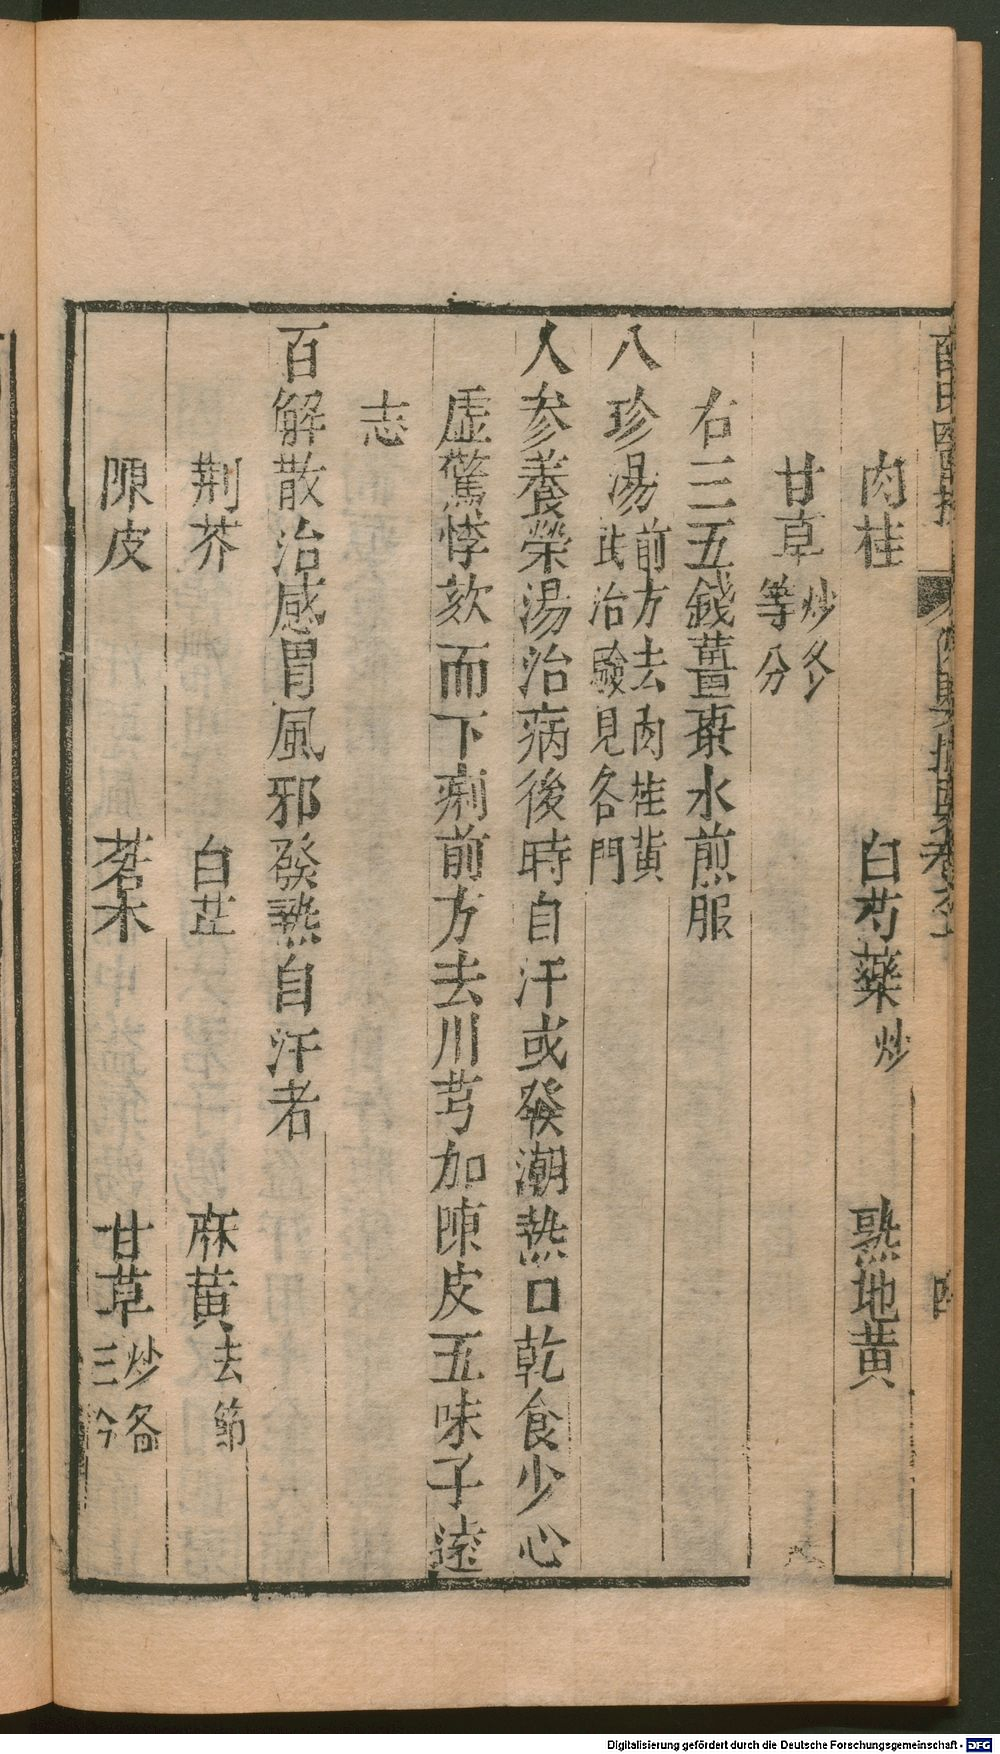 肉桂 白芍藥炒 熟地黄
甘草炒各等分
右三五錢薑棗水煎服
八珍湯前方去肉桂黄此治驗見各門
人参養榮湯治病後時自汗或發潮熱口乾食少心
虚驚悸欬而下痢前方去川芎加陳皮五味子遠
志
百解散治感冒風邪發熱自汗者
荆芥 白芷 麻黄去節
陳皮 蒼术 甘草炒各三分
Digitalisierung gefördert durch die Deutsche Forschungsgemeinschaft - DFG